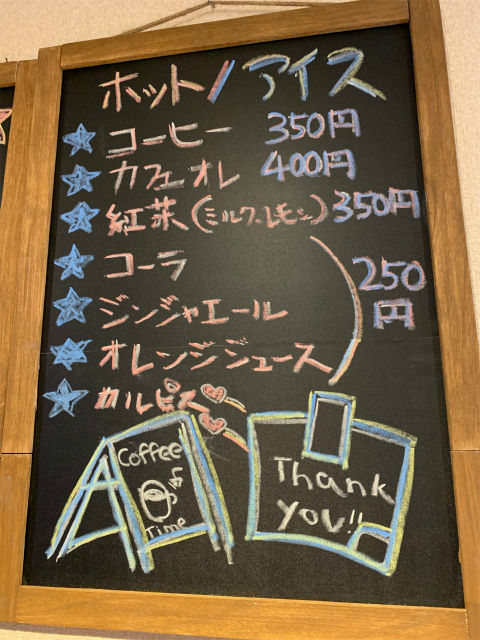 ホット/アイス
コーヒー 350円
カフェオレ 400円
紅茶(ミルク、レモン) 350円
コーラ
ジンジャエール
オレンジジュース
カルピス
250
円
Coffee
Time
Thank
you!!